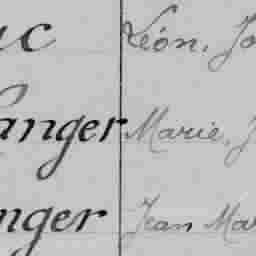 uc Léon, Jo
langer Marie, J
nger Jean Mar